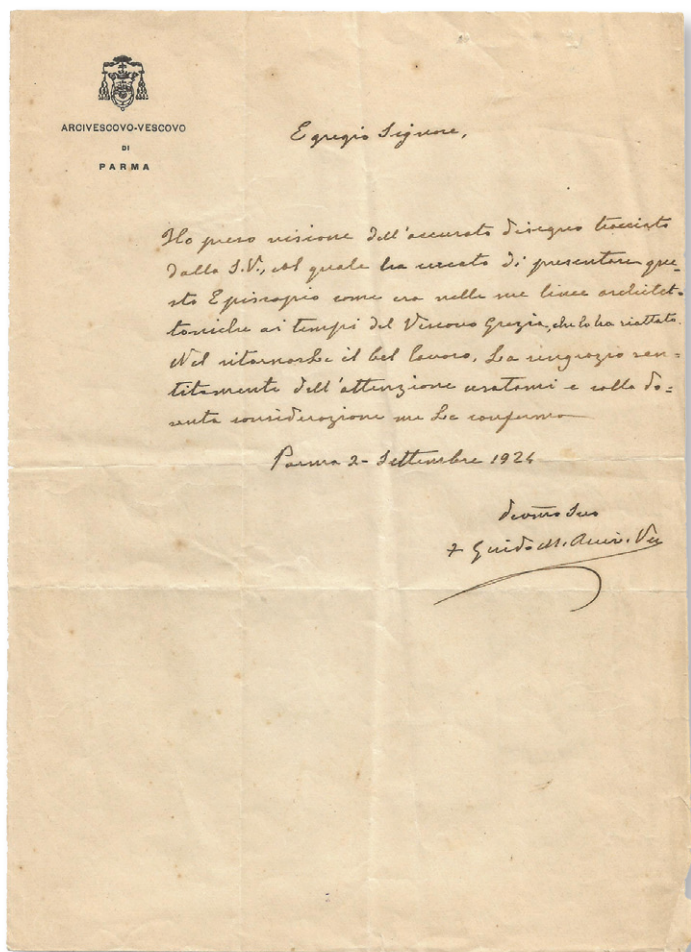 ARCIVESCOVO-VESCOVO
DI
PARMA
Egregio Signore,
Ho preso visione dell'accurato disegno tracciato
dalla S.V., col quale ha cercato di presentare que=
sto Episcopio come era nelle sue linee architet=
toniche ai tempi del Vescovo Grazia, che lo ha riattato.
Nel ritornarLe il bel lavoro, La ringrazio sen=
titamente dell'attenzione usatami e colla do=
vuta considerazione me Le confermo
Parma 2- Settembre 1924
devmo Suo
+ Guido M. Arciv. Vesc